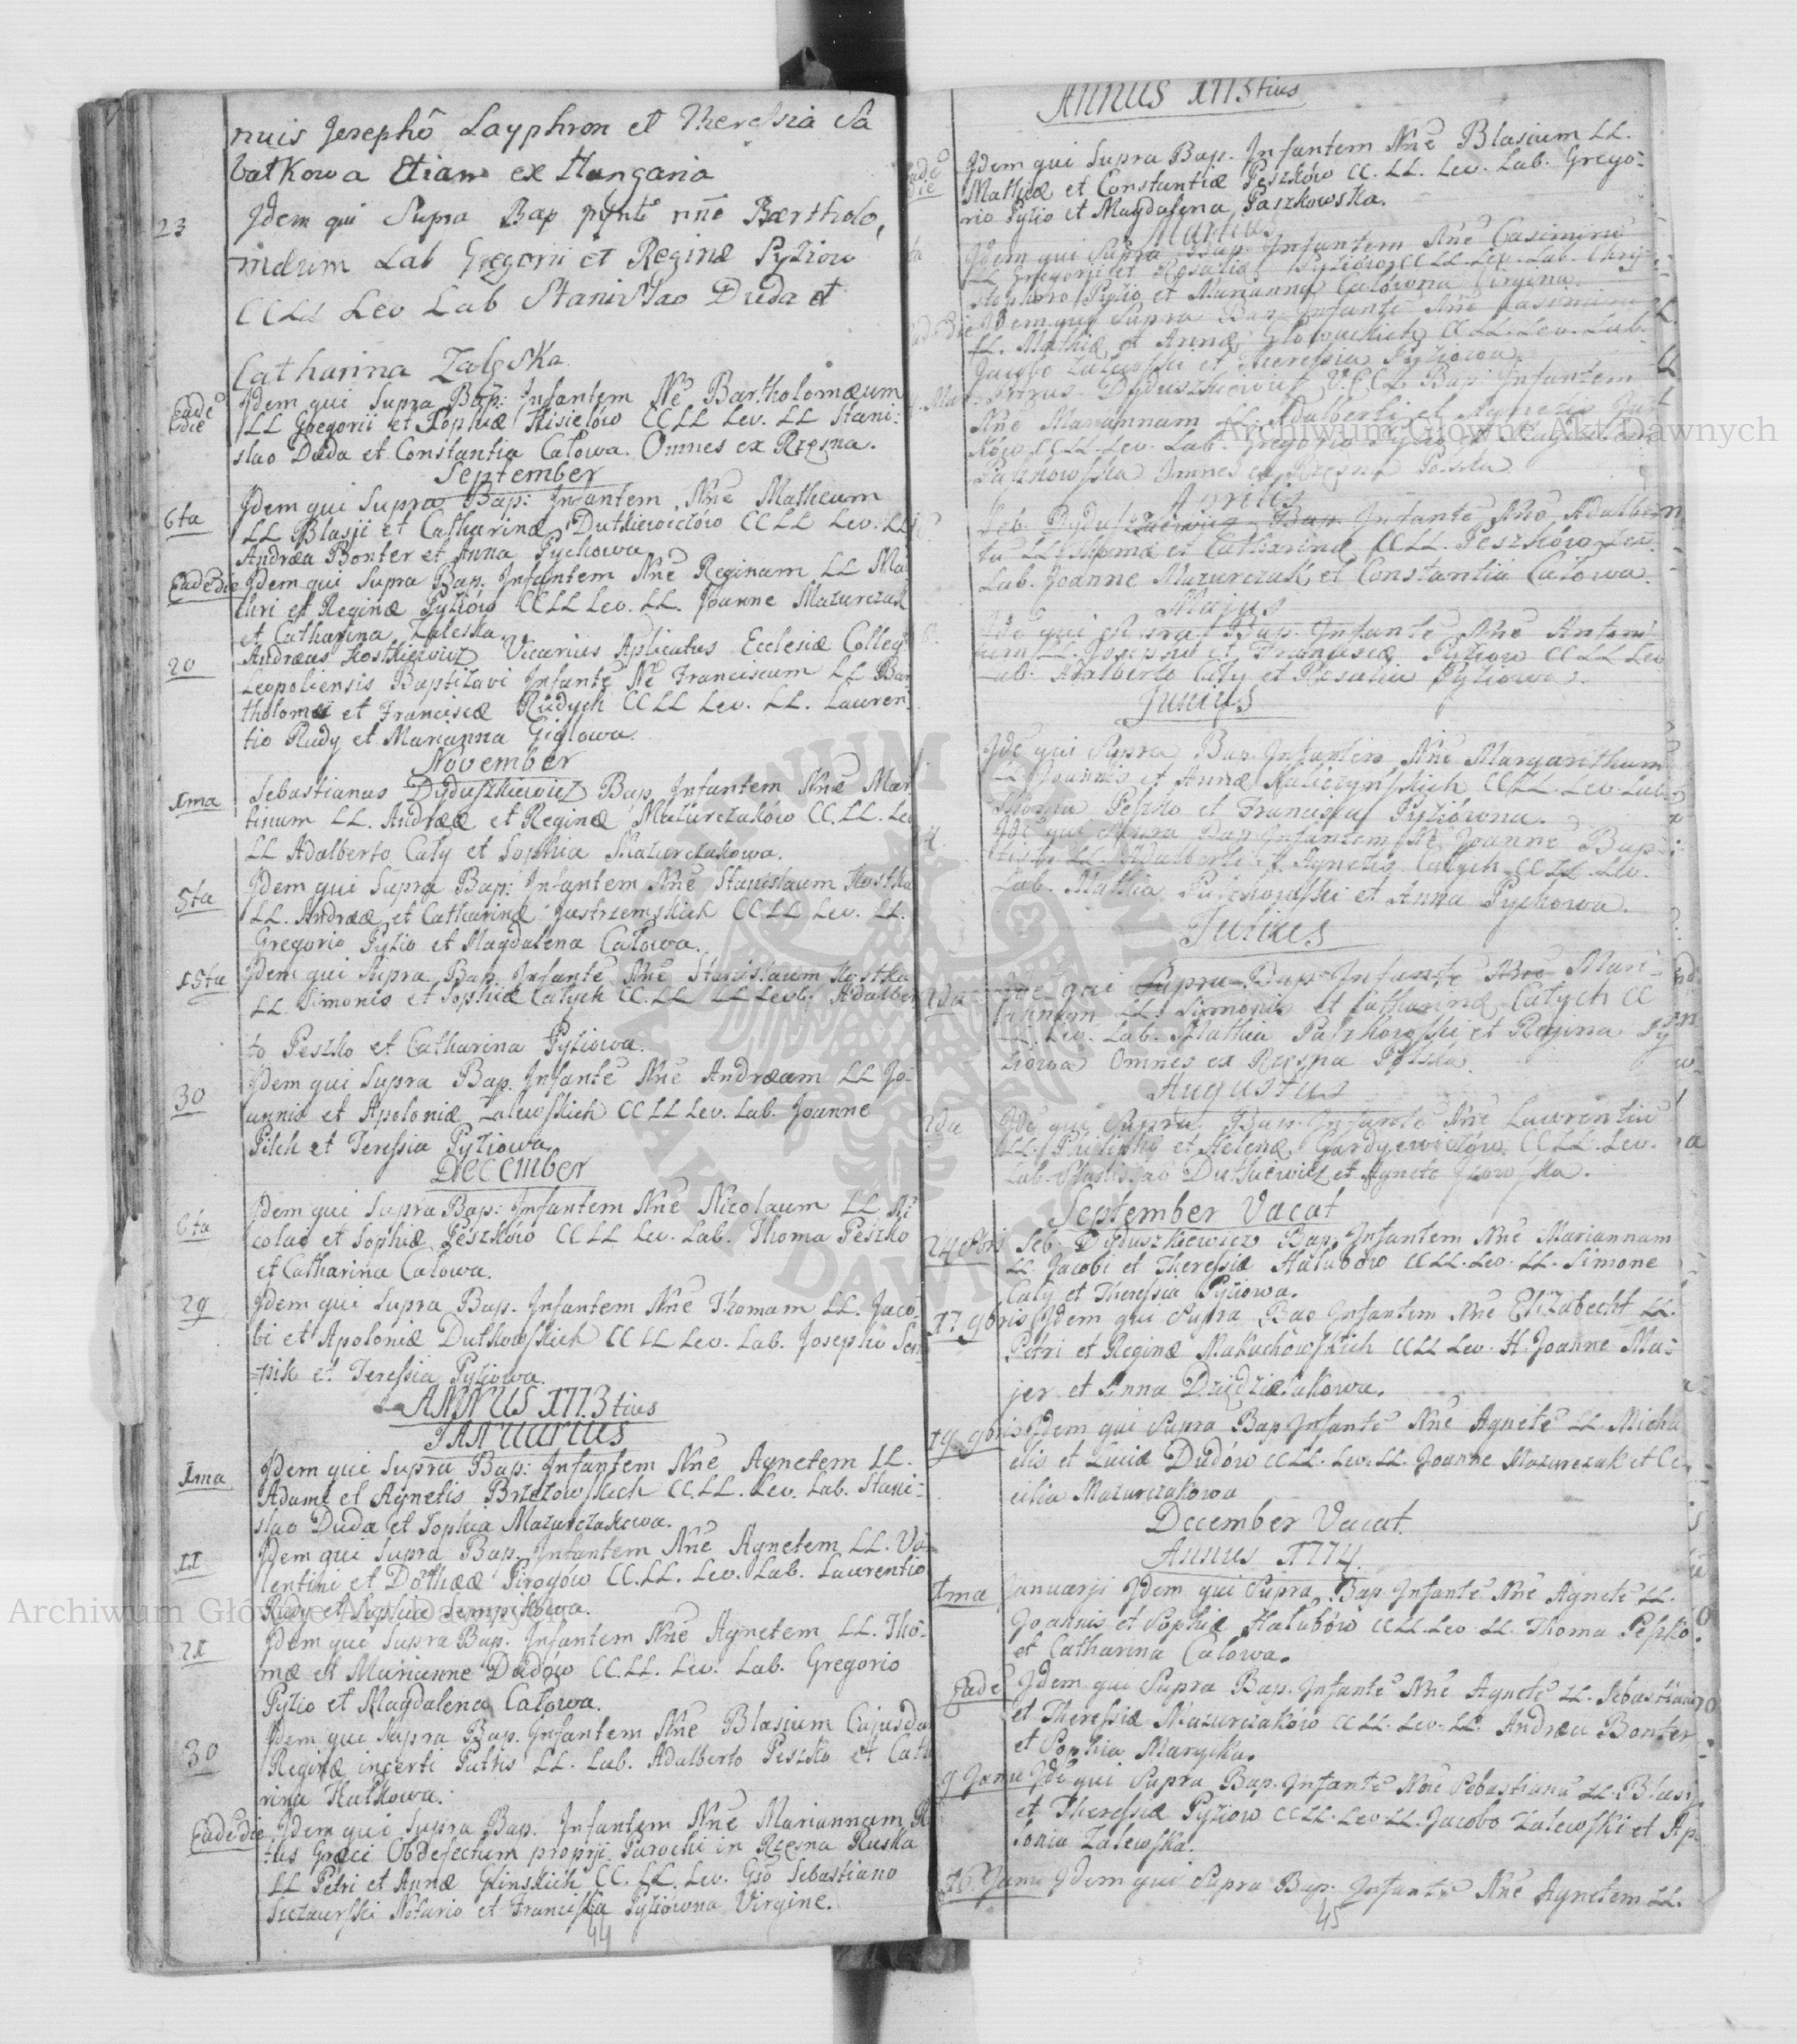 nuis Josephô Layphron et Theressia Sa
batkowa Etiam ex Hungaria
23 Jdem qui Supra Bap nñe Bartholo,
mæum Lab Gregorii et Reginæ Pyziow
CCLL Leo Lab Stanislao Duda et
Catharina Zaleska
Eadē die Jdem qui Supra Bap: Infantem Nē Bartholomæum
LL Gregorii et Sophiæ Kisielów CCLL Lev. LL Stani:
slao Duda et Constantia Całowa. Omnes ex Rzęsna.
September
6ta Jdem qui Supra Bap: Infantem Nñe Matheum
LL Blasji et Catharinæ Dutkiewiczów CCLL Lev. LL
Andræa Bonter et Anna Pychowa
Eadē die Jdem qui Supra Bap. Infantem Nñe Reginam LL Ma
et Reginæ Pyziów CCLL Lev. LL. Joanne Mazurczak
et Catharina Zaleska.
20 Andræas Kostkiewicz Vicarius Aplicatus Ecclesiæ Colleg
Leopoliensis Baptizavi Infantē Nē Franciscum LL Bar
tholomæi et Franciscæ Rudych CCLL Lev. LL. Lauren
tio Rudy et Marianna Giglowa.
November
1ma Sebastianus Dyduszkiewicz Bap. Infantem Nñe Mar
tinum LL. Andreæ et Reginæ Mazurczaków CC.LL. Le
LL Adalberto Cały et Sophia Mazurczakowa.
5ta Jdem qui Supra Bap: Infantem Nñe Stanislaum Kostka
LL. Andreæ et Catharinæ Jastrzemskich CCLL Lev. LL.
Gregorio Pyzio et Magdalena Całowa.
15ta Jdem qui Supra Bap. Infantē Nñe Stanislaum Kostka
LL Simonis et Sophiæ Całych CC.LL LL Lev. Adalber
to Peszko et Catharina Pyziowa.
30 Jdem qui Supra Bap. Infantē Nñe Andræam LL Jo
annis et Apoloniæ Zalewskich CCLL Lev. Lab. Joanne
Pilch et Teressia Pyziowa.
DECCmber
6ta Jdem qui Supra Bap: Infantem Nñe Nicolaum LL Ni
colai et Sophiæ Peszków CCLL Lev. Lab. Thoma Peszko
et Catharina Całowa.
29 Jdem qui Supra Bap. Infantem Nñe Thomam LL. Jaco
bi et Apoloniæ Dutkowskich CCLL Lev. Lab. Josephô Sem
=pik et Teressia Pyziowa.
ANNUS 1773tius
JANuarius
1ma Jdem qui Supra Bap: Infantem Nñe Agnetem LL.
Adami et Agnetis Brzezowskich CC.LL. Lev. Lab. Stani:
slao Duda et Sophia Mazurczakowa.
11 Jdem qui Supra Bap. Infantem Nñe Agnetem LL. Va
lentini et Pirogów CC.LL. Lev. Lab. Laurentio
Rudy et Sophia Sempikowa.
21 Jdem qui Supra Bap. Infantem Nñe Agnetem LL. Tho
mæ et Marianne Dudów CC.LL. Lev. Lab. Gregorio
Pyzio et Magdalena Całowa.
30 Jdem qui Supra Bap. Infantem Nñe Blasium Cujusda
Reginæ incerti Patris LL. Lab. Adalberto Peszko et Catha
rina Kalkowa.
Eadē die Jdem qui Supra Bap. Infantem Nñe Mariannam Ri
tus Græci Obdefectum proprji Parochi in Rzęsna Ruska
LL Petri et Annæ Glinskich CC. LL. Lev. Gsō Sebastiano
Notario et Franciska Pyziówna Virgine.
44
ANNUS 1773tius
Eadē die Jdem qui Supra Bap. Infantem Nñe Blasium LL.
Mathiæ et Constantiæ Peszków CC. LL. Lev. Lab. Grego:
rio Pyzio et Magdalena Paszkowska.
Martius
Jdem qui Supra Bap. Infantem Nñe Casimirū
LL Gregorji et Rosaliæ Pyziów CCLL Lev. Lab. Chry
stophoro Pyzio et Marianna Całówna Virgine.
Jdem qui Supra Bap. Infantē Nñe Casimirū
LL. Mathiæ et Annæ Głowackich CCLL. Lev. Lab.
Jacobo Zalewski et Theressia Pyziowa.
Petrus Dyduszkiewicz Bap. Infantem
Nñe Mariannam LL. Adalberti et Agnetis
CCLL. Lev. Lab. Gregorio Pyzio et Magdalena
Paszkowska Omnes ex Rzęsna Polska
Aprilis
Seb. Dyduszkiewicz Bap. Infantē Nñe Adalber
tū LL Thomæ et Catharinæ CCLL. Peszków Lev.
Lab. Joanne Mazurczak et Constantia Całowa.
Majus
Jdē qui Supra Bap. Infantē Nñe Antoni
um LL. Josephi et Franciscæ Pyziow CCLL Lev
Lab. Adalberto Cały et Rosalia Pyziowa.
Junius
Jdē qui Supra Bap. Infantem Nñe Margaritham
LL Joannis et Annæ Kaliczynskich CCLL. Lev. Lab.
Thoma Peszko et Francisca Pyziówna.
Jdē qui Supra Bap. Infantem Nē Joannē Bap
tistā LL. Adalberti et Agnetis Całych CCLL. Lev.
Lab. Mathia Paszkowski et Anna Pychowa.
Julius
2da Jdē qui Supra Bap. Infantē Nñe Mari
annam LL. Simonis et Catharinæ Całych CC
LL Lev. Lab. Mathia Paszkowski et Regina Py
ziowa Omnes ex Rzęsna Polska.
Augustus
2da Jdē qui Supra Bap. Infantē Nñe Laurentiū
LL. Philippi et Helenæ Gardyewiczów CCLL. Lev.
Lab. Stanislao Dutkiewicz et Agnete
September Vacat
24 8bris Seb. Dyduszkiewicz Bap. Infantem Nñe Mariannam
LL. Jacobi et Theressiæ Hałubów CCLL. Lev. LL. Simone
Cały et Theressia Pyziowa.
17 9bris Jdem qui Supra Bap Infantem Nñe Elizabecht LL.
Petri et Reginæ Makuchowskich CCLL Lev. H. Joanne Ma:
jer et Anna Dzidziakowa.
19 9bris Jdem qui Supra Bap Infantē Nñe Agnetē LL Micha
elis et Luciæ Dudów CCLL. Lev. LL. Joanne Mazurczak et Ce
cilia Mazurczakowa
December Vacat.
Annus 1774
1ma Januarji Jdem qui Supra Bap Infantē Nñe Agnetē LL.
Joannis et Sophiæ Hałubów CCLL. Lev. LL. Thoma Peszko
et Catharina Całowa.
Eadē Jdem qui Supra Bap. Infantē Nñe Agnetē LL. Sebastiani
et Theressiæ Mazurczaków CCLL. Lev. LL. Andrea Bonter
et Sophia Marycka.
9 Janu Jdē qui Supra Bap. Infantē Nñe Sebastianū LL. Blasji
et Theressiæ Pyziow CCLL. Lev LL. Jacobo Zalewski et Apo
lonia Zalewska.
10 Janu Jdem qui Supra Bap. Infantē Nñe Agnetem LL.
45
Archiwum Główne Akt Dawnych
Archiwum Główne Akt Dawnych